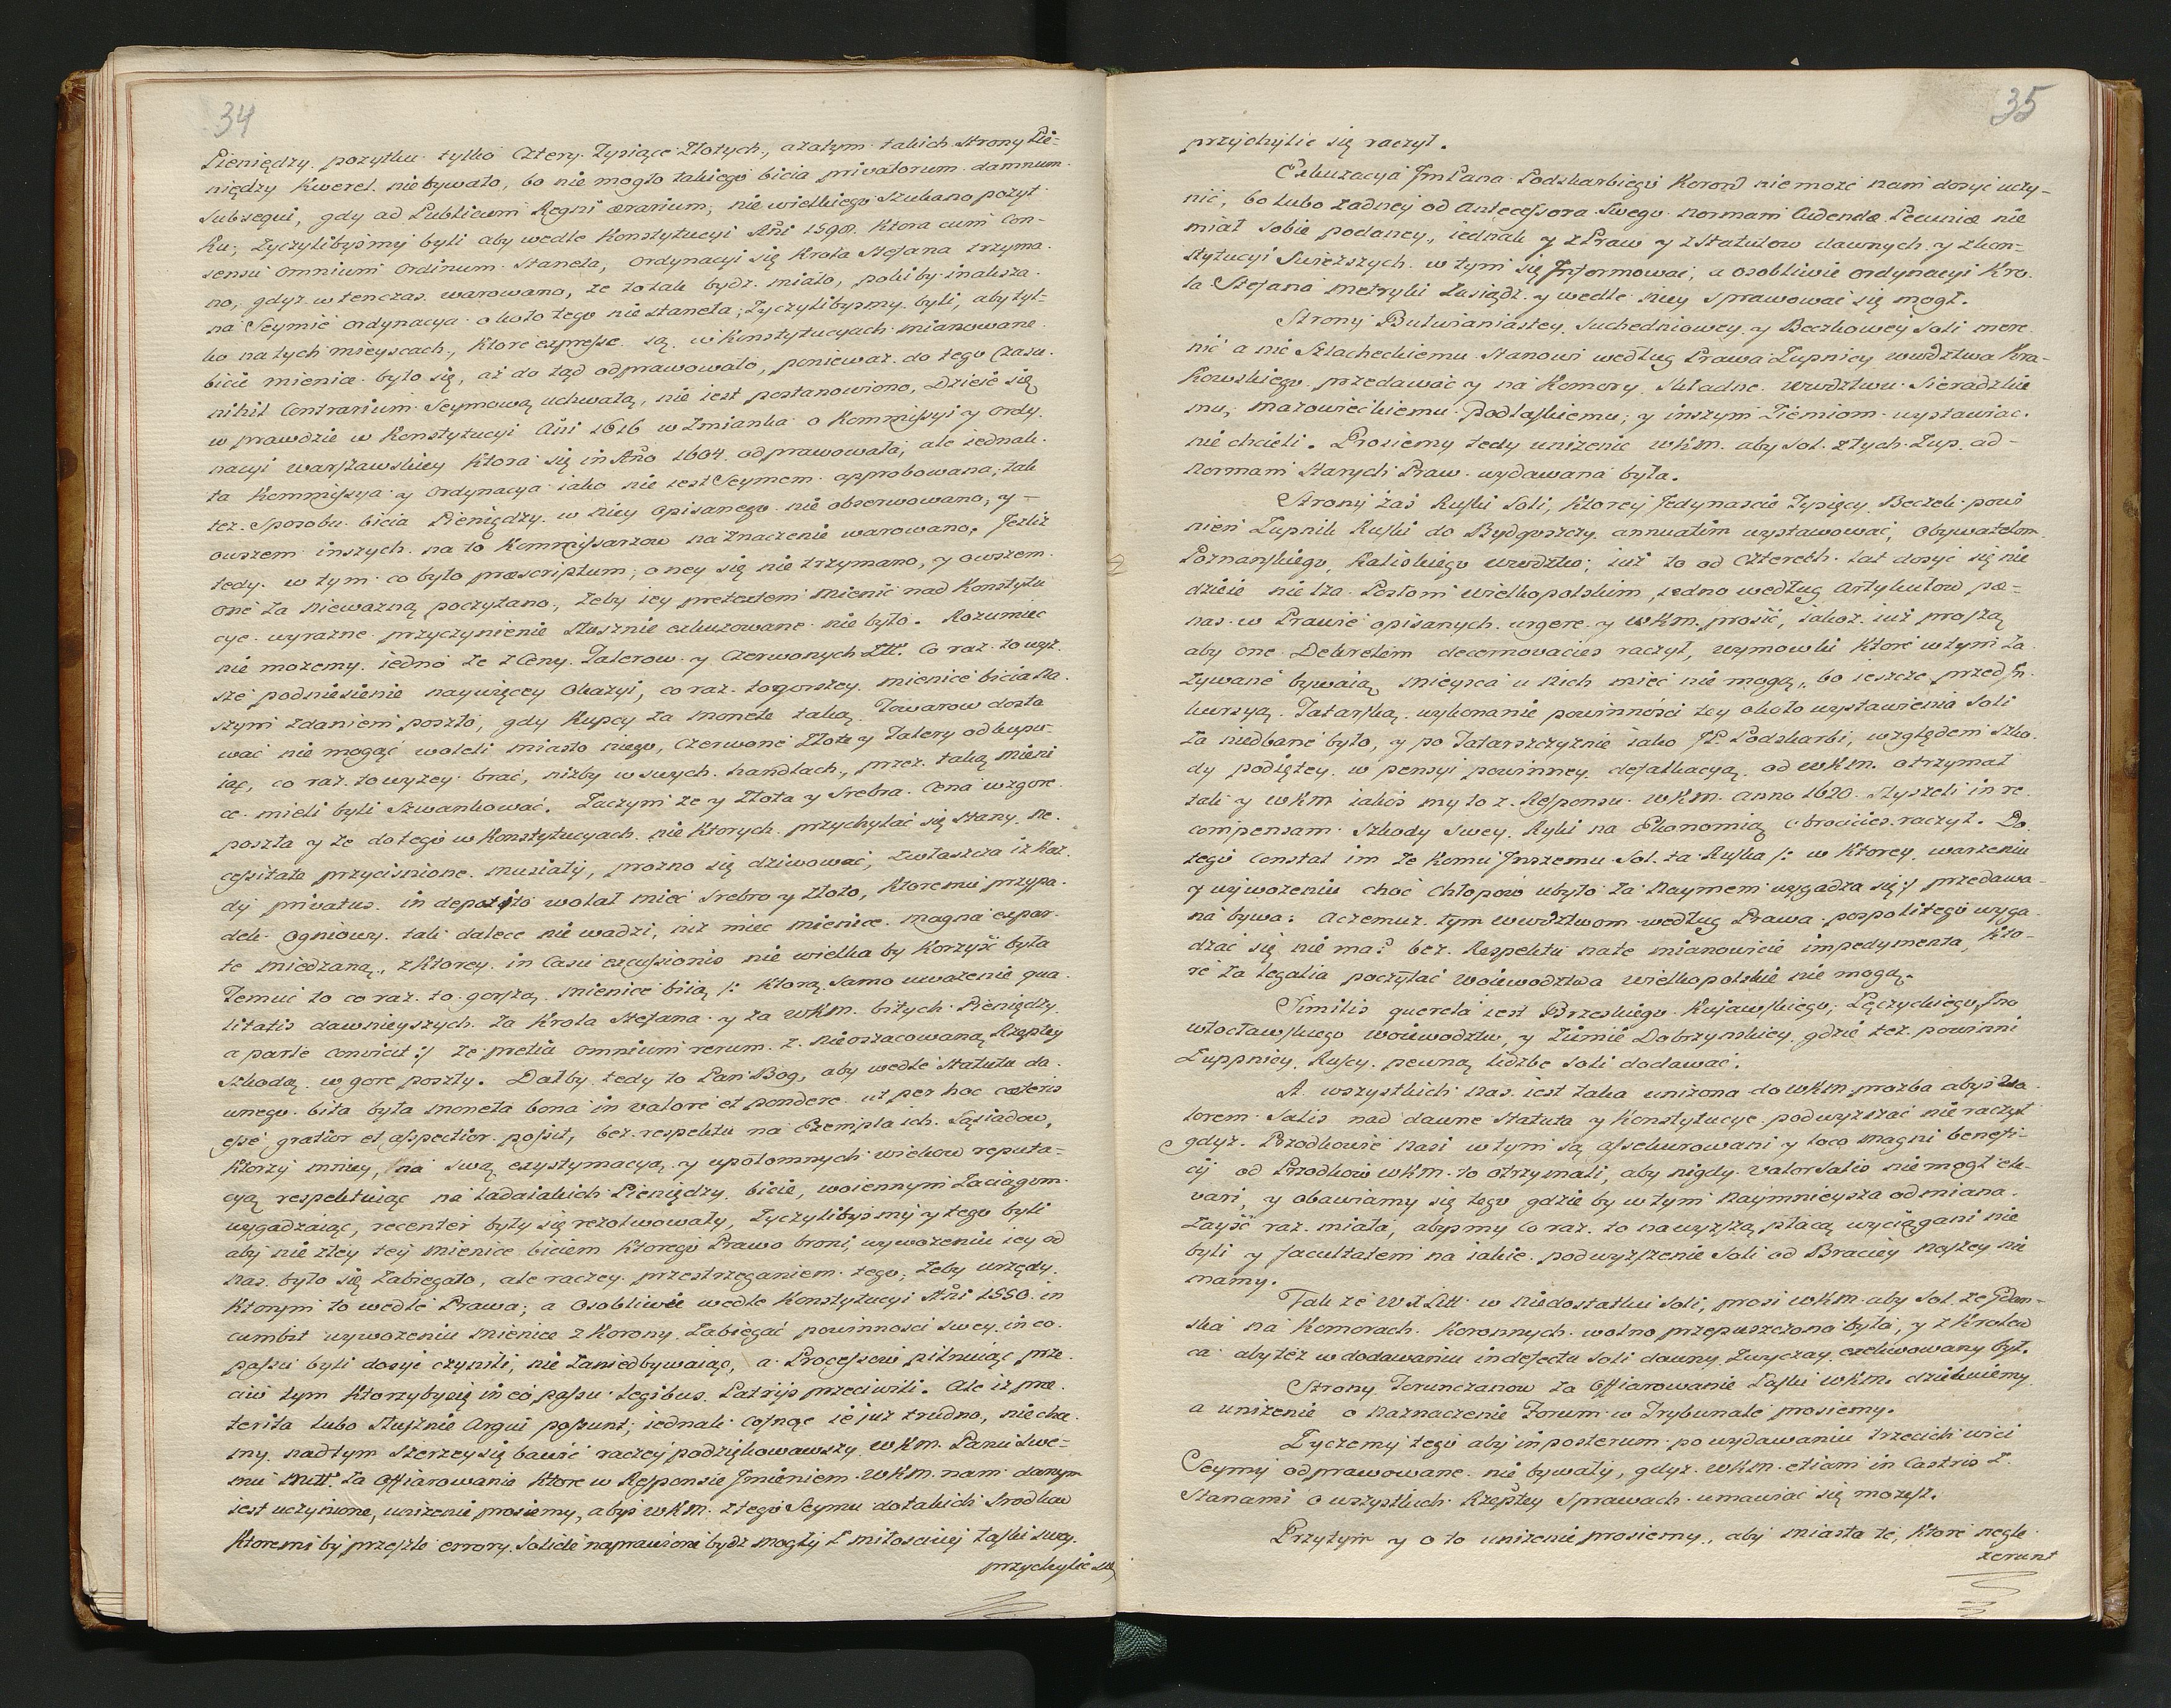 34
Pieniędzy pozytku tylko Cztery Tysiące Złotych, azatym takich strony Pie-
niędzy Kwerel niebywało, bo nie mogło takiego bicia privatorum damnum
subsequi, gdy ad Publicum Regni ærarium, nie wielkiego Szukano pozyt-
ku; Zyczylibyśmy byli aby wedle Konstytucyi Añi 1598. Ktora cum con-
sensu omnium ordinum Staneła, ordynacyi się Krola Stefana trzyma-
no, gdyz wtenczas warowano, ze to tak bydz miało, pokiby inaksza
na Seymie ordynacya około tego nie staneła; Zyczylibysmy byli, aby tyl-
ko na tych mieyscach, ktore expresse są w Konstytucyach mianowane
bicie mienice było się, aż do tąd odprawowało, poniewaz do tego czasu
nihil Contrarium Seymową uchwałą, nie iest postanowiono, Dzieie się
w prawdzie w Konstytucyi Añi 1616 wzmianka o Kommissyi y Ordy-
nacyi warszawskiey, ktora się in Año 1604 odprawowała, ale iednak
ta Kommissya y Ordynacya iako nie iest Seymem approbowana, tak
tez Sposobu bicia Pieniędzy w niey opisanego nie obserwowano, y
owszem inszych na to Kommissarzow naznaczenie warowano. Jezliż
tedy w tym co było præscriptum, o ney się nie trzymano, y owszem
one za niewazną poczytano, zeby iey pretextem mienic nad Konstytu
cye wyrazne przyczynienie słusznie exkuzowane nie było. Rozumiec
nie mozemy iedno ze z Ceny Talerow y Czerwonych Złł. Co raz to wyż
sze podniesienie naywięcey okazyi, co raz to gorszey mienice bicia na
szym zdaniem poszło, gdy Kupcy za monetę taką Towarow dosta
wać nie mogąc woleli miasto niego, Czerwone Złote y Talery odkupu-
iąc, co raz to wyzey brać, nizby w swych handlach, przez taką mieni
ce mieli byli Szwankować. Zaczym ze y Złota y Srebra Cena wzgore
poszła y ze do tego w Konstytucyach nie ktorych przychylać się Stany ne-
cessitate przyciśnione musiały, prozno się dziwować, zwłaszcza iz kaz-
dy privatus in deposito wolał mieć Srebro y Złoto, ktoremu przypa-
dek ogniowy tak dalece nie wadzi, niz miec mienice magna expar-
te miedzaną, z ktorey in Casu excussionis nie wielka by korzyść była
Temuć to co raz to gorszą mienice biią /: ktorą samo uwazenie qua-
litatis dawnieyszych za Krola Stefana y za WKM. bitych Pieniędzy
a parte convicit :/ ze pretia omnium rerum z nieoszacowaną Rzeptey
Szkodą w gore poszły. Dałby tedy to Pan Bog, aby wedle Statutu da-
wnego bita była moneta bona in valore et pondere ut per hoc cæteris
esse gratior et aspectior possit, bez respektu na Exempla ich Sąsiadow,
Ktorzy mniey, na swą exystymacyą y upotomnych wiekow reputa-
cyą respektuiąc na ladaiakich Pieniędzy bicie, woiennym zaciągom
wygadzaiąc, recenter były się rezolwowały, Zyczylibyśmy y tego byli
aby nie złey tey mienice biciem ktorego Prawo broni, wywozeniu iey od
nas było się zabiegało, ale raczey przestrzeganiem tego, zeby urzędy
ktorym to wedle Prawa, a osobliwie wedle Konstytucyi Añi 1550. in
cumbit wywozeniu mienice z Korony zabiegać powinnosci swey in eo
passu byli dosyć czynili, nie zaniedbywaiąc, a Processow pilnuiąc prze-
ciw tym ktorzyby się in eo passu legibus Patrijs przeciwili. Ale iz præ-
terita lubo słusznie argui possunt, iednak cofnąc ie juz trudno, nie chce
my nad tym szerzey się bawić raczey podziękowawszy WKM. Panu swe-
mu Miłł. za offiarowanie ktore w Responsie Jmieniem WKM. nam danym
iest uczynione, unizenie prosiemy, abyś WKM. z tego Seymu do takich srodkow
ktoremi by przeszłe errory solide naprawione bydz mogły z miłosciwey łaski swey
przychylić się
35
przychylic się raczył.
Exkuzacya JmPana Podskarbiego Koron̄ nie moze nam dosyć uczy-
nić, bo lubo zadney od Antecessora swego normam Cudendæ Pecuniæ nie
miał sobie podaney, iednak y z Praw y z Statutow dawnych y z Kon-
stytucyi swiezszych w tym się Jnformować, a osobliwie ordynacyi Kro-
la Stefana metryki zasiądz y wedle niey sprawować się mogł.
Strony Bałwaniastey, suchedniowey y Beczkowey Soli mere
nic a nic Szlacheckiemu Stanowi według Prawa Zupnicy wwdztwa Kra-
kowskiego przedawać y na Komory Składne wwdztwu Sieradzkie
mu, Mazowieckiemu Podlaskiemu, y inszym Ziemiom wystawiac
nie chcieli. Prosiemy tedy unizenie WKM. aby Sol z tych Zup ad
normam starych Praw wydawana była.
Strony zaś Ruski Soli, ktorey Jedynascie Tysięcy Beczek powi
nien Zupnik Ruski do Bydgoszczy annuatim wystawować, Obywatelom
Poznanskiego, Kaliskiego wwdztw, iuż to od Czterech lat dosyć się nie
dzieie nie lza Posłom wielkopolskim, iedno według Artykułow pæ-
nas w Prawie opisanych urgere y WKM. prosić, iakoż iuż proszą
aby one Dekretem decernovacies raczył, wymowki ktore w tym za
zywane bywaią mieysca u nich miec nie mogą, bo ieszcze przed In-
kursyą Tatarską wykonanie powinności tey około wystawienia Soli
za niedbane było, y po Tatarszczyznie iako JP. Podskarbi, względem szko-
dy podiętey w pensyi powinney defalkacyą od WKM. otrzymał
tak y WKM iakoś my to z Responsu WKM. anno 1620. słyszeli in re-
compensam szkody swey Ryki na Ekonomią obrociciesraczył. Do
tego constat im ze komu Jnszemu Sol ta Ruska /: w ktorey warzeniu
y wywozeniu choć chłopow ubyło za naymem wygadza się :/ przedawa-
na bywa: Aczemuz tym wwdztwom według Prawa pospolitego wyga-
dzać się nie ma? bez Respektu na te mianowicie impedymenta, kto-
re za legalia poczytać Woiewodztwa wielkopolskie nie mogą.
Similis querela iest Brzeskiego Kujawskiego, Łęczyckiego, Jno
włocławskiego woiewodztw, y Ziemie Dobrzynskiey, gdzie tez powinni
Zuppnicy Ruscy pewną liczbe Soli dodawać.
A wszystkich nas iest taka unizona do WKM prozba abyś va-
lorem Salis nad dawne Statuta y Konstytucye podwyzszać nie raczył
gdyz Przodkowie nasi w tym są assekurowani y loco magni benefi-
cij od Przodkow WKM. to otrzymali, aby nigdy valor Salis nie mogł ele-
vari, y obawiamy się tego gdzie by w tym naymnieysza odmiana
zayść raz miała, abysmy co raz to na wyzszą płacą wyciągani nie
byli y facultatem na iakie podwyzszenie Soli od Braciey naszey nie
mamy.
Tak ze WXLitt w niedostatku Soli, prosi WKM. aby Sol ze Gdan-
ska na Komorach Koronnych wolno przepuszczona była, y z Krolew
ca aby tez w dodawaniu indefectu Soli dawny Zwyczay exekwowany był.
Strony Torunczanow za Offiarowanie Łaski WKM. dziękuiemy
a unizenie o naznaczenie Forum w Trybunale prosiemy.
Zyczemy tego aby inposterum po wydawaniu trzecich wici
Seymy odprawowane nie bywały, gdyz WKM. etiam in Castris z
Stanami o wszystkich Rzeptey Sprawach umawiać się możesz.
Przytym y o to unizenie prosiemy, aby miasta te, ktore negle-
xerunt